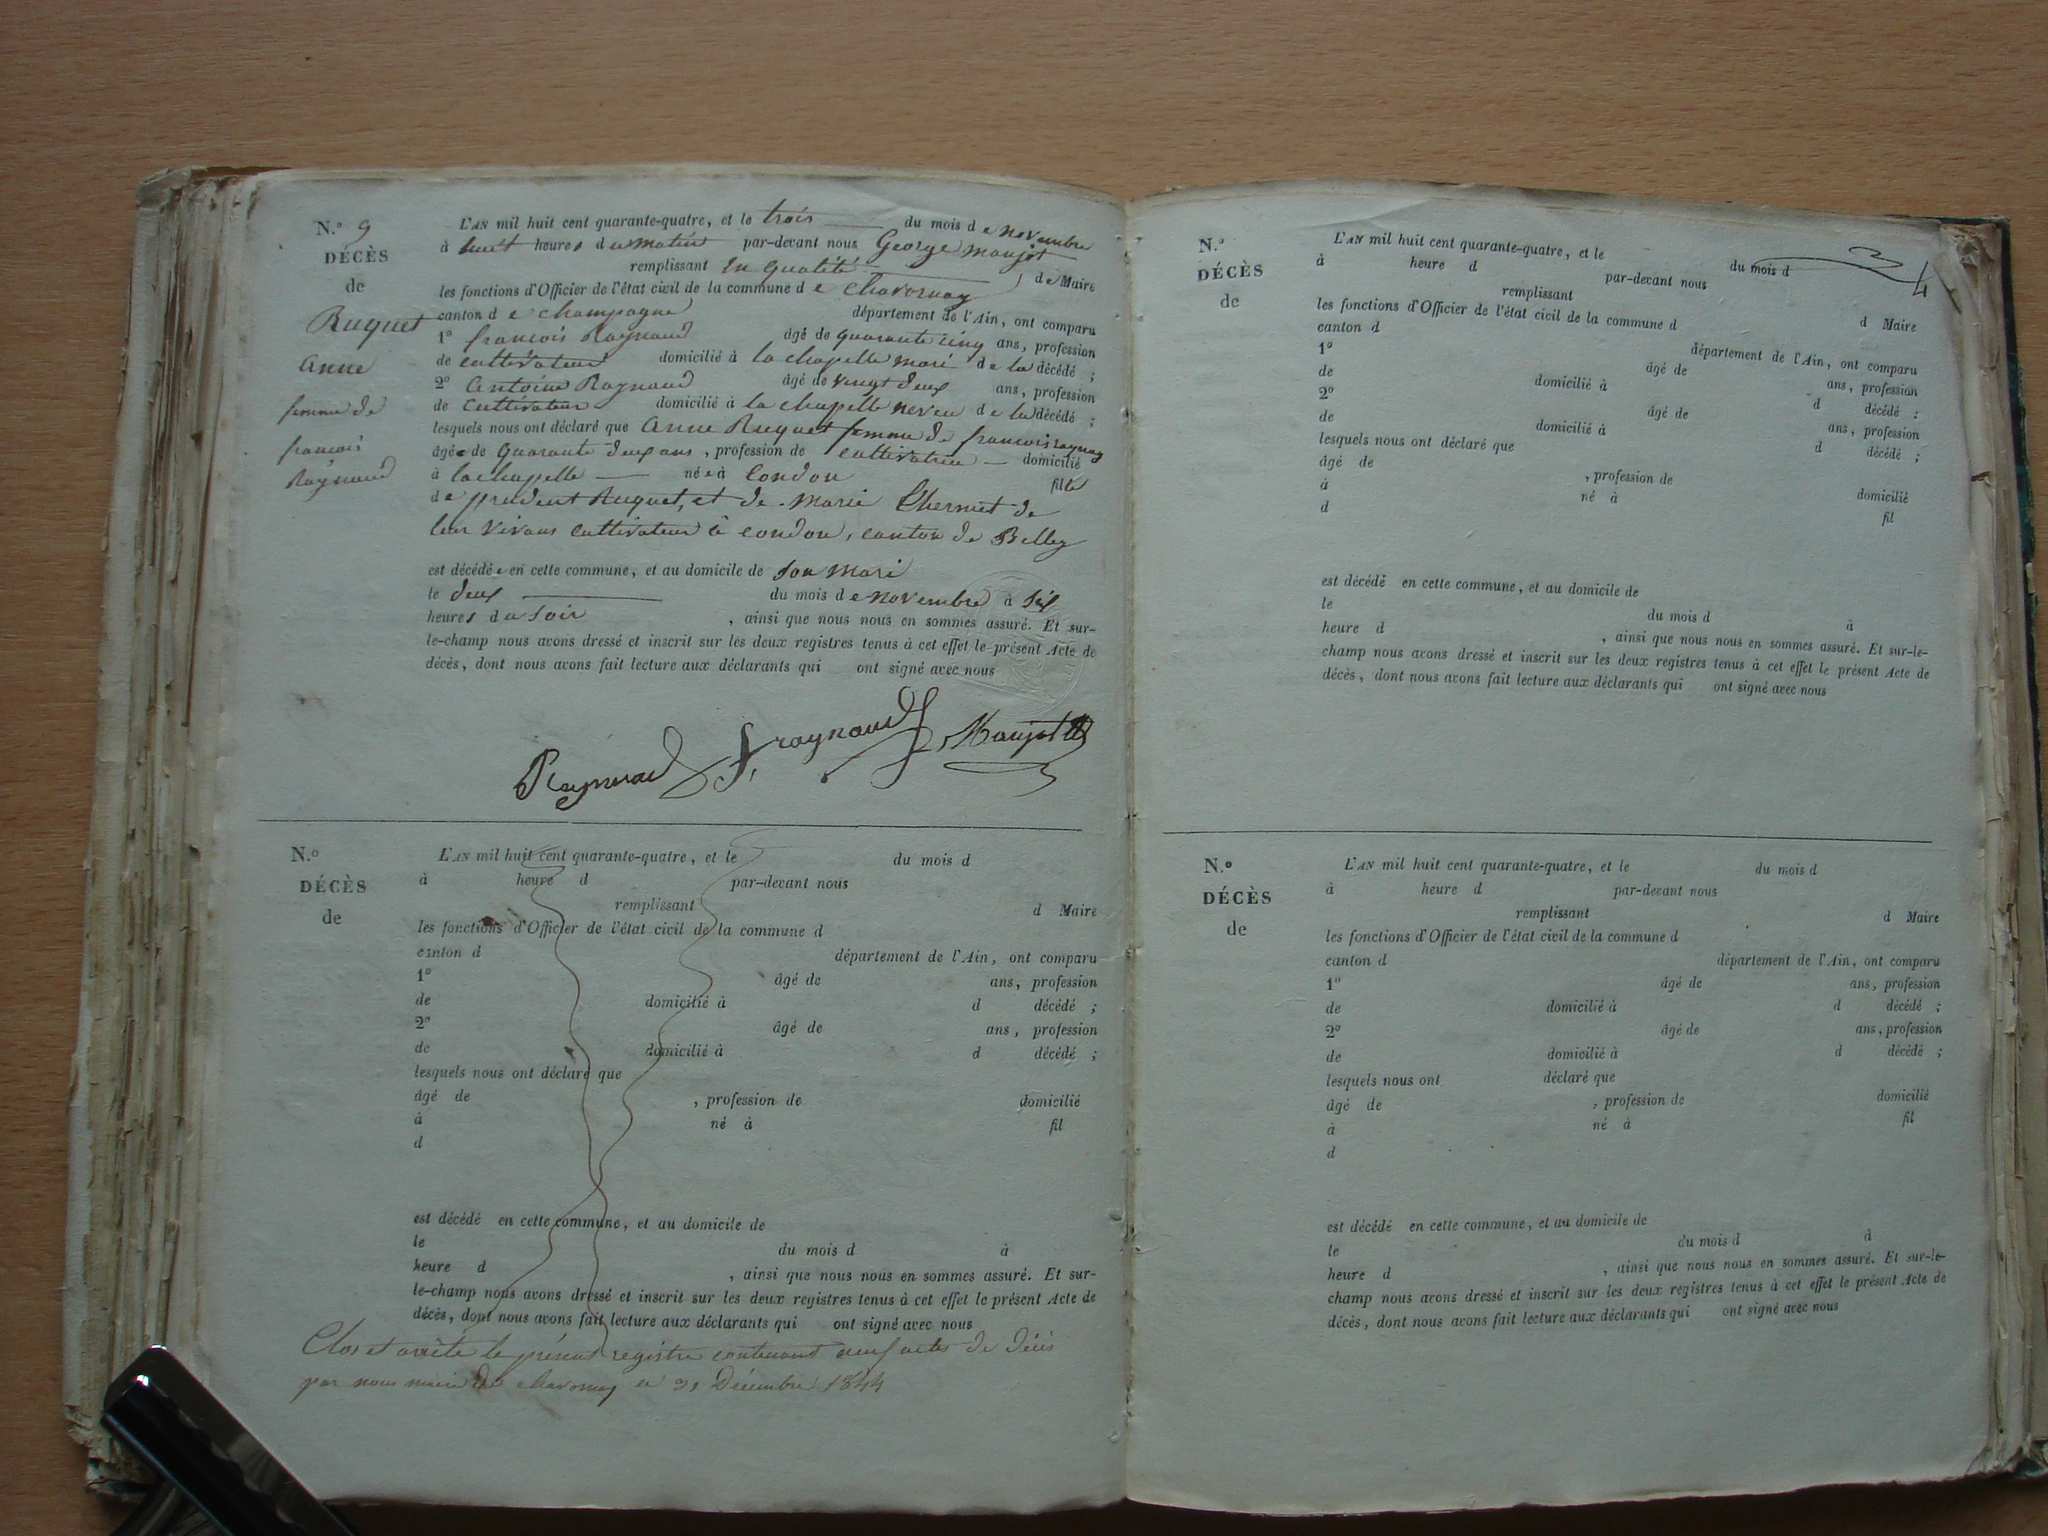 N.º 9
DÉCÈS
de
Ruquet
anne
femme de
francois
Raynaud
L'AN mil huit cent quarante-quatre, et le trois du mois de novembre
à huit heures du matin par-devant nous George maujot
remplissant en qualité de Maire
les fonctions d'Officier de l'état civil de la commune de Chavornay
canton de champagne département de l'Ain, ont comparu
1º francois Raynaud âgé de quarante cinq ans, profession
de cultivateur domicilié à la chapelle mari de la décédé ;
2º antoine Raynaud âgé de vingt deux ans, profession
de cultivateur domicilié à la chapelle neveu de la décédé ;
lesquels nous ont déclaré que anne Ruquet femme de francois raynaud
âgée de quarante deux ans, profession de cultivatrice domicilié
à lachapelle née à Condon fille
de prudent Ruquet, et de marie Chermet de
leur vivans cultivateur à condon, canton de Belley
est décédée en cette commune, et au domicile de son mari
le deux du mois de novembre à six
heures du soir, ainsi que nous nous en sommes assuré. Et sur-
le-champ nous avons dressé et inscrit sur les deux registres tenus à cet effet le présent Acte de
décès, dont nous avons fait lecture aux déclarants qui ont signé avec nous
Raynaud f, raynaud Maujot
N.º
DÉCÈS
de
L'AN mil huit cent quarante-quatre, et le du mois d
à heure d par-devant nous
remplissant d Maire
les fonctions d'Officier de l'état civil de la commune d
canton d département de l'Ain, ont comparu
1º âgé de ans, profession
de domicilié à d décédé ;
2º âgé de ans, profession
de domicilié à d décédé ;
lesquels nous ont déclaré que
âgé de , profession de domicilié
à né à fil
d
est décédé en cette commune, et au domicile de
le du mois d à
heure d , ainsi que nous nous en sommes assuré. Et sur-
le-champ nous avons dressé et inscrit sur les deux registres tenus à cet effet le présent Acte de
décès, dont nous avons fait lecture aux déclarants qui ont signé avec nous
Clos et arrêté le présent registre contenant neuf actes de décès
par nous maire de chavornay le 31 Décembre 1844
4
N.º
DÉCÈS
de
L'AN mil huit cent quarante-quatre, et le du mois d
à heure d par-devant nous
remplissant d Maire
les fonctions d'Officier de l'état civil de la commune d
canton d département de l'Ain, ont comparu
1º âgé de ans, profession
de domicilié à d décédé ;
2º âgé de ans, profession
de domicilié à d décédé ;
lesquels nous ont déclaré que
âgé de , profession de domicilié
à né à fil
d
est décédé en cette commune, et au domicile de
le du mois d à
heure d , ainsi que nous nous en sommes assuré. Et sur-le-
champ nous avons dressé et inscrit sur les deux registres tenus à cet effet le présent Acte de
décès, dont nous avons fait lecture aux déclarants qui ont signé avec nous
N.º
DÉCÈS
de
L'AN mil huit cent quarante-quatre, et le du mois d
à heure d par-devant nous
remplissant d Maire
les fonctions d'Officier de l'état civil de la commune d
canton d département de l'Ain, ont comparu
1º âgé de ans, profession
de domicilié à d décédé ;
2º âgé de ans, profession
de domicilié à d décédé ;
lesquels nous ont déclaré que
âgé de , profession de domicilié
à né à fil
d
est décédé en cette commune, et au domicile de
le du mois d à
heure d , ainsi que nous nous en sommes assuré. Et sur-le-
champ nous avons dressé et inscrit sur les deux registres tenus à cet effet le présent Acte de
décès, dont nous avons fait lecture aux déclarants qui ont signé avec nous